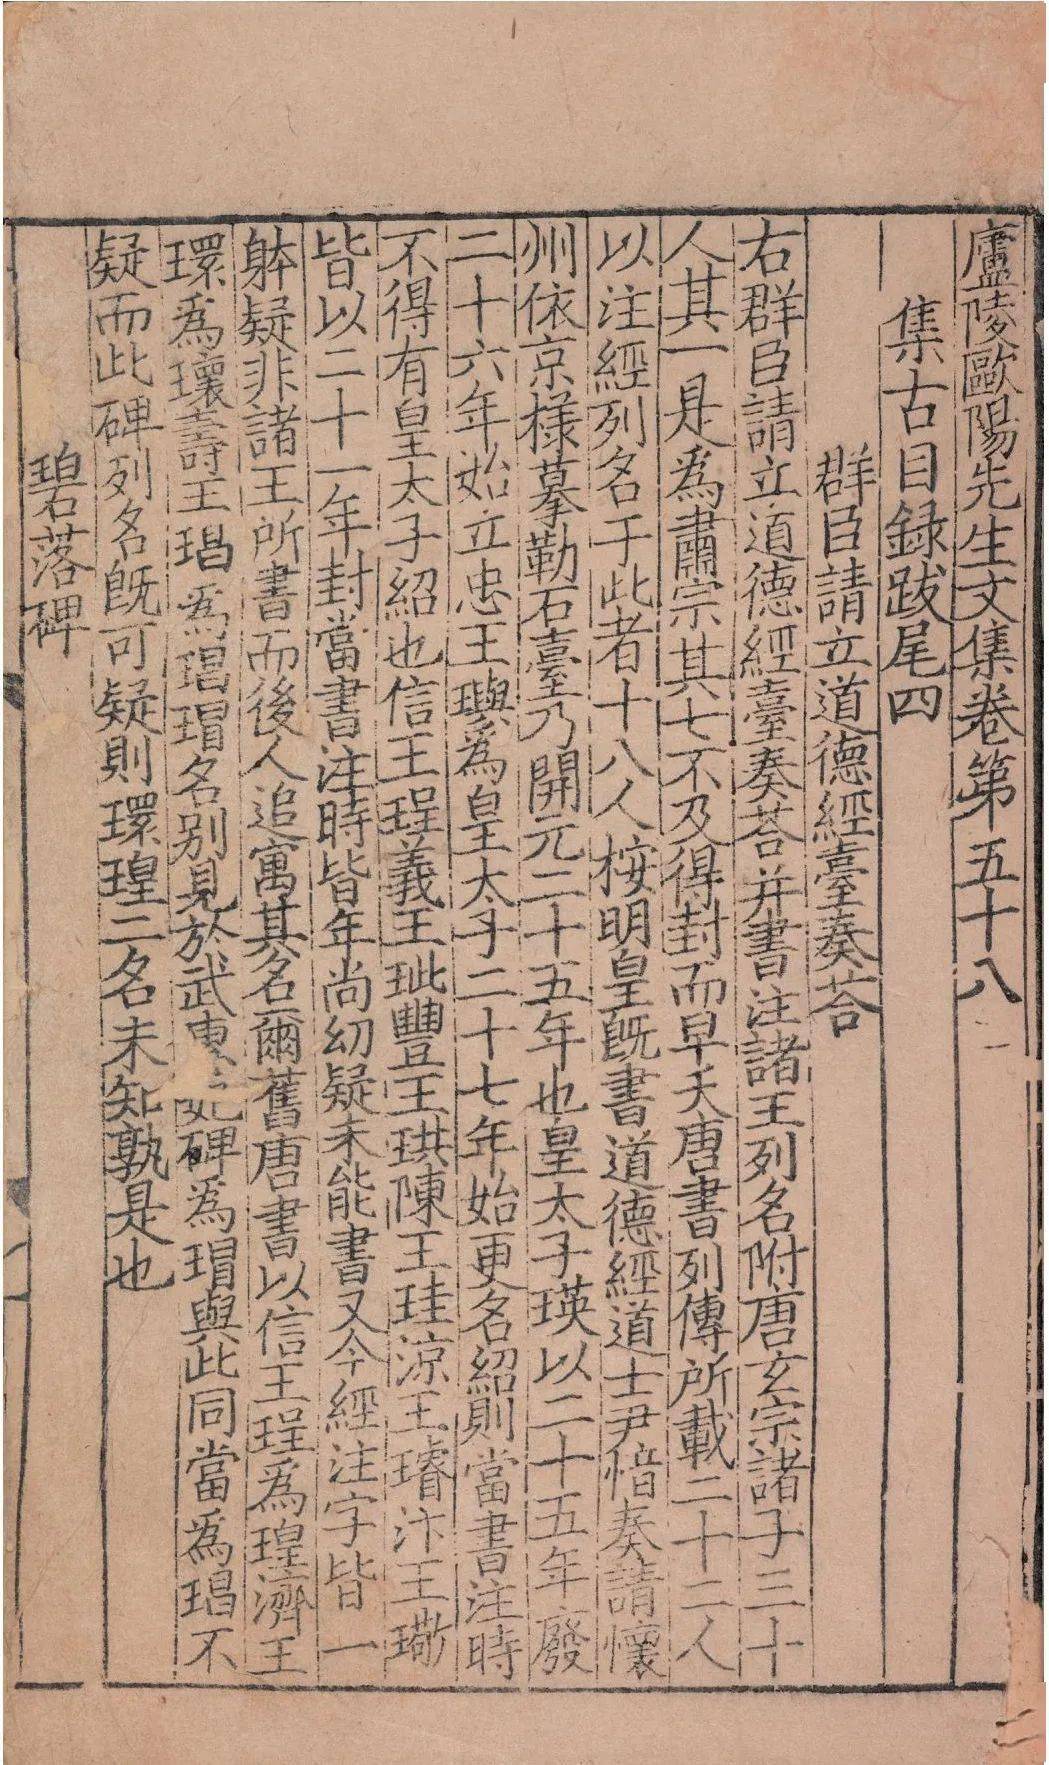 廬陵歐陽先生文集卷第五十八
集古目録跋尾四
群臣請立道德經臺奏荅
右群臣請立道德經臺奏荅并書注諸王列名附唐玄宗諸子三十
人其一是為肅宗其七不及得封而早夭唐書列傳所載二十二人
以注經列名于此者十八人桉明皇既書道德經道士尹愔奏請懷
州依京樣摹勒石臺乃開元二十五年也皇太子瑛以二十五年廢
二十六年始立忠王璵為皇太子二十七年始更名紹則當書注時
不得有皇太子紹也信王珵義王玼豐王珙陳王珪涼王璿汴王璥
皆以二十一年封當書注時皆年尚幼疑未能書又今經注字皆一
躰疑非諸王所書而後人追寓其名爾舊唐書以信王珵為瑝濟王
環為瓌壽王琩為瑁瑁名别見於武惠妃碑為瑁與此同當為琩不
疑而此碑列名既可疑則環瑝二名未知孰是也
碧落碑
二